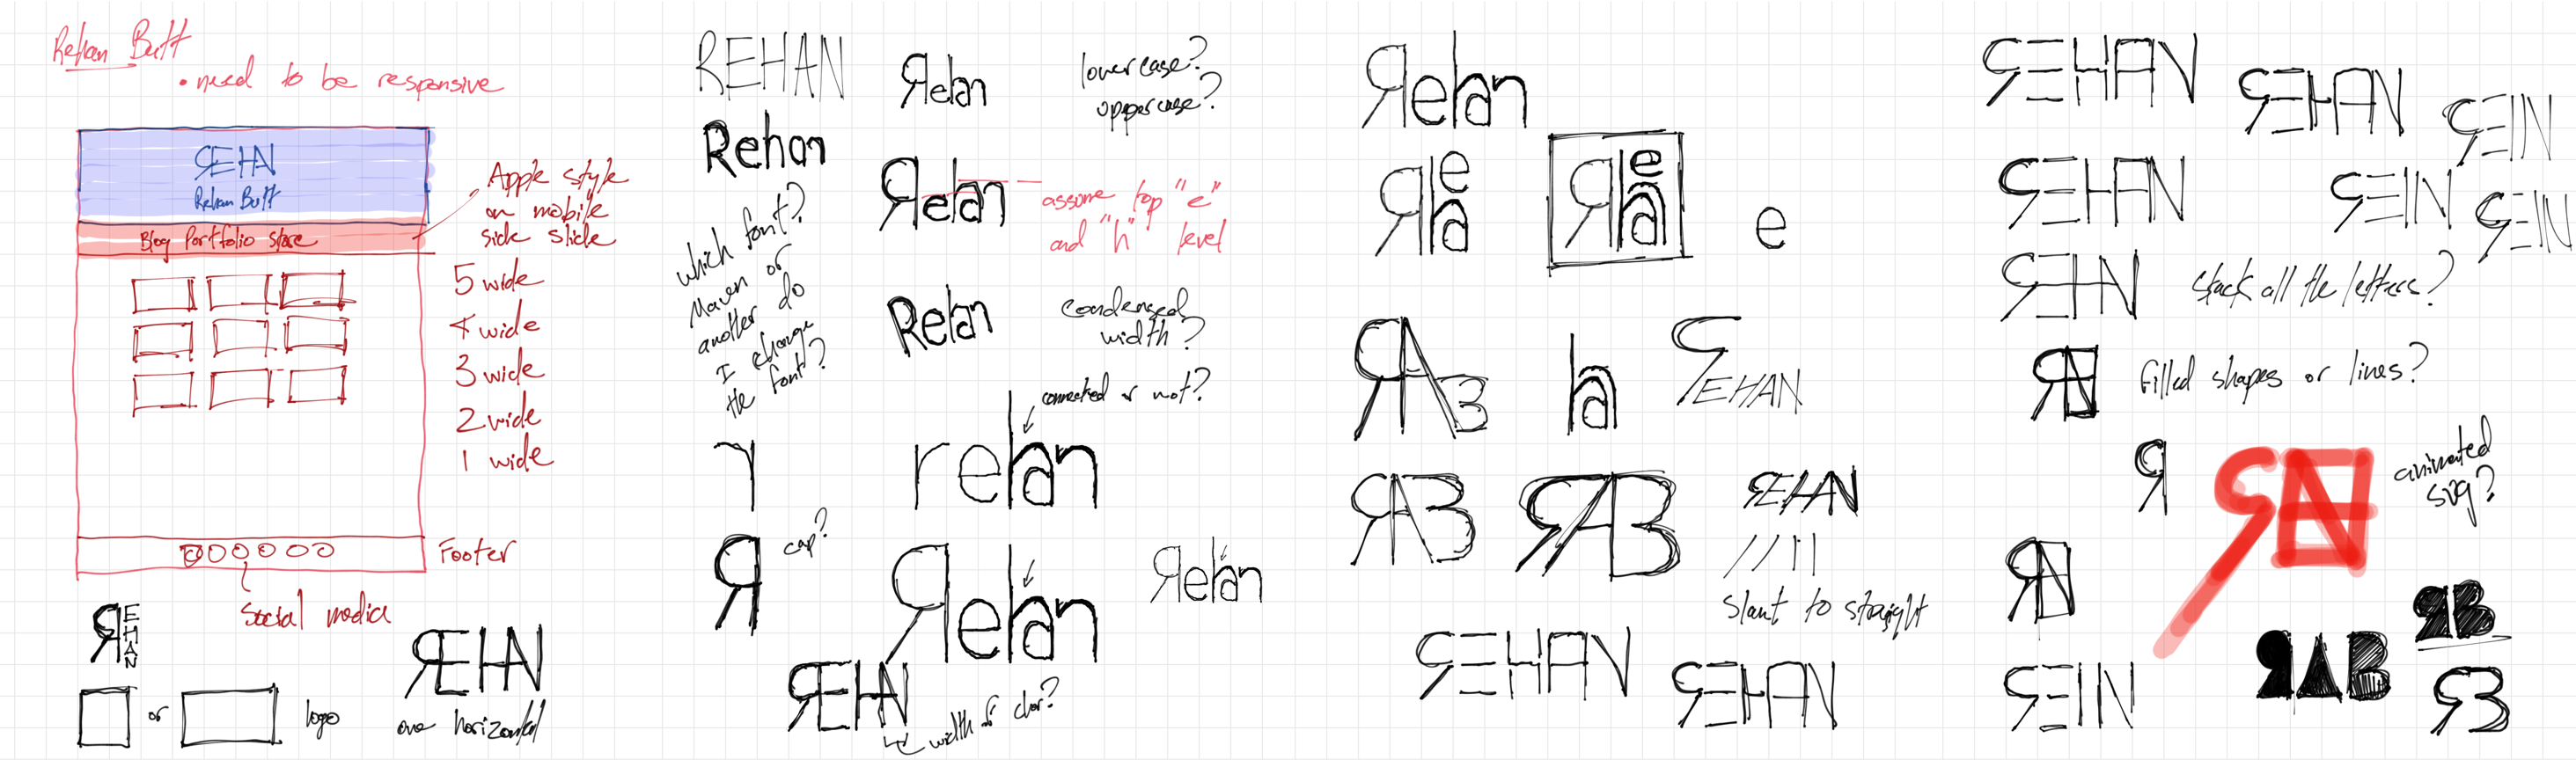 Rehan Butt
• need to be responsive
REHN
Rehan Butt
Blog Portfolio Store
Apple style
on mobile
side slide
5 wide
4 wide
3 wide
2 wide
1 wide
Footer
Social media
R
EHAN
or
logo
REHN
one horizontal
REHAN
Rehan
which font?
Maven or
another do
I change
the font?
r
R
cap?
Rehan
lowercase?
uppercase?
Rehan
assume top "e"
and "h" level
Rehan
condensed
width?
connected or not?
rehan
Rehan
Rehan
REHN
width of char?
Rehan
Reha
Reha
e
RAB
ha
REHAN
RAB
RAB
REHAN
slant to straight
REHAN
REHAN
REHAN
REHAN
REIN
REHAN
REIN
REIN
REHN
stack all the letters?
filled shapes or lines?
R
animated
svg?
REIN
RAB
RB
RB